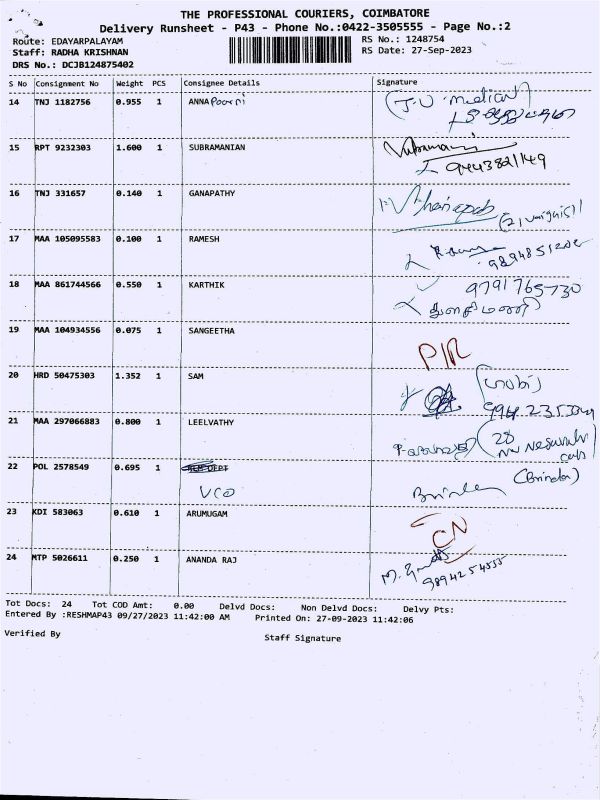 THE PROFESSIONAL COURIERS, COIMBATORE
Delivery Runsheet - P43 - Phone No.:0422-3505555 - Page No.:2
Route: EDAYARPALAYAM RS No.: 1248754
Staff: RADHA KRISHNAN RS Date: 27-Sep-2023
DRS No.: DCJB124875402
S No Consignment No Weight PCS Consignee Details Signature
14 TNJ 1182756 0.955 1 ANNA Poorni
15 RPT 9232303 1.600 1 SUBRAMANIAN
9443821149
16 TNJ 331657 0.140 1 GANAPATHY
17 MAA 105095583 0.100 1 RAMESH
18 MAA 861744566 0.550 1 KARTHIK 9791765730
துளசிமணி
19 MAA 104934556 0.075 1 SANGEETHA
P/R
20 HRD 50475303 1.352 1 SAM
21 MAA 297066883 0.800 1 LEELVATHY 28
22 POL 2578549 0.695 1
VCO (Brinda)
23 KDI 583063 0.610 1 ARUMUGAM
CN
24 MTP 5026611 0.250 1 ANANDA RAJ
9894254555
Tot Docs: 24 Tot COD Amt: 0.00 Delvd Docs: Non Delvd Docs: Delvy Pts:
Entered By :RESHMAP43 09/27/2023 11:42:00 AM Printed On: 27-09-2023 11:42:06
Verified By Staff Signature